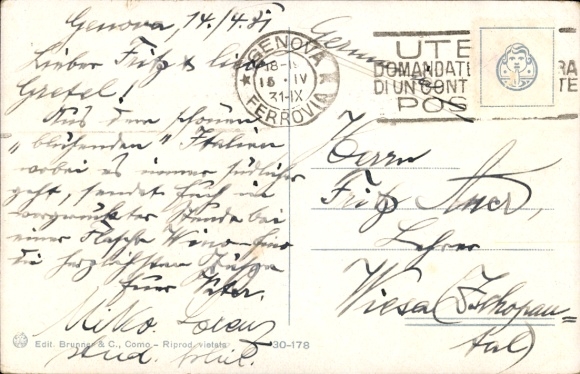 Genova, 14./4.31
Lieber Fritz & liebe
Gretel!
Aus dem schönen
„blühenden" Italien
wobei es immer südlicher
geht, sendet Euch in
vorgerückter Stunde bei
einer Flasche Wino
die herzlichsten Grüsse
Euer Peter.
Miko
stud. phil.
GENOVA
18-
15 · IV
31-IX
FERROVIA
UTE
DOMANDATE
DI UN CONT
POS
RA
TE
Herrn
Fritz Auer,
Lehrer
Wiesa (Zschopau=
tal)
Edit. Brunner & C., Como - Riprod. vietata
30-178